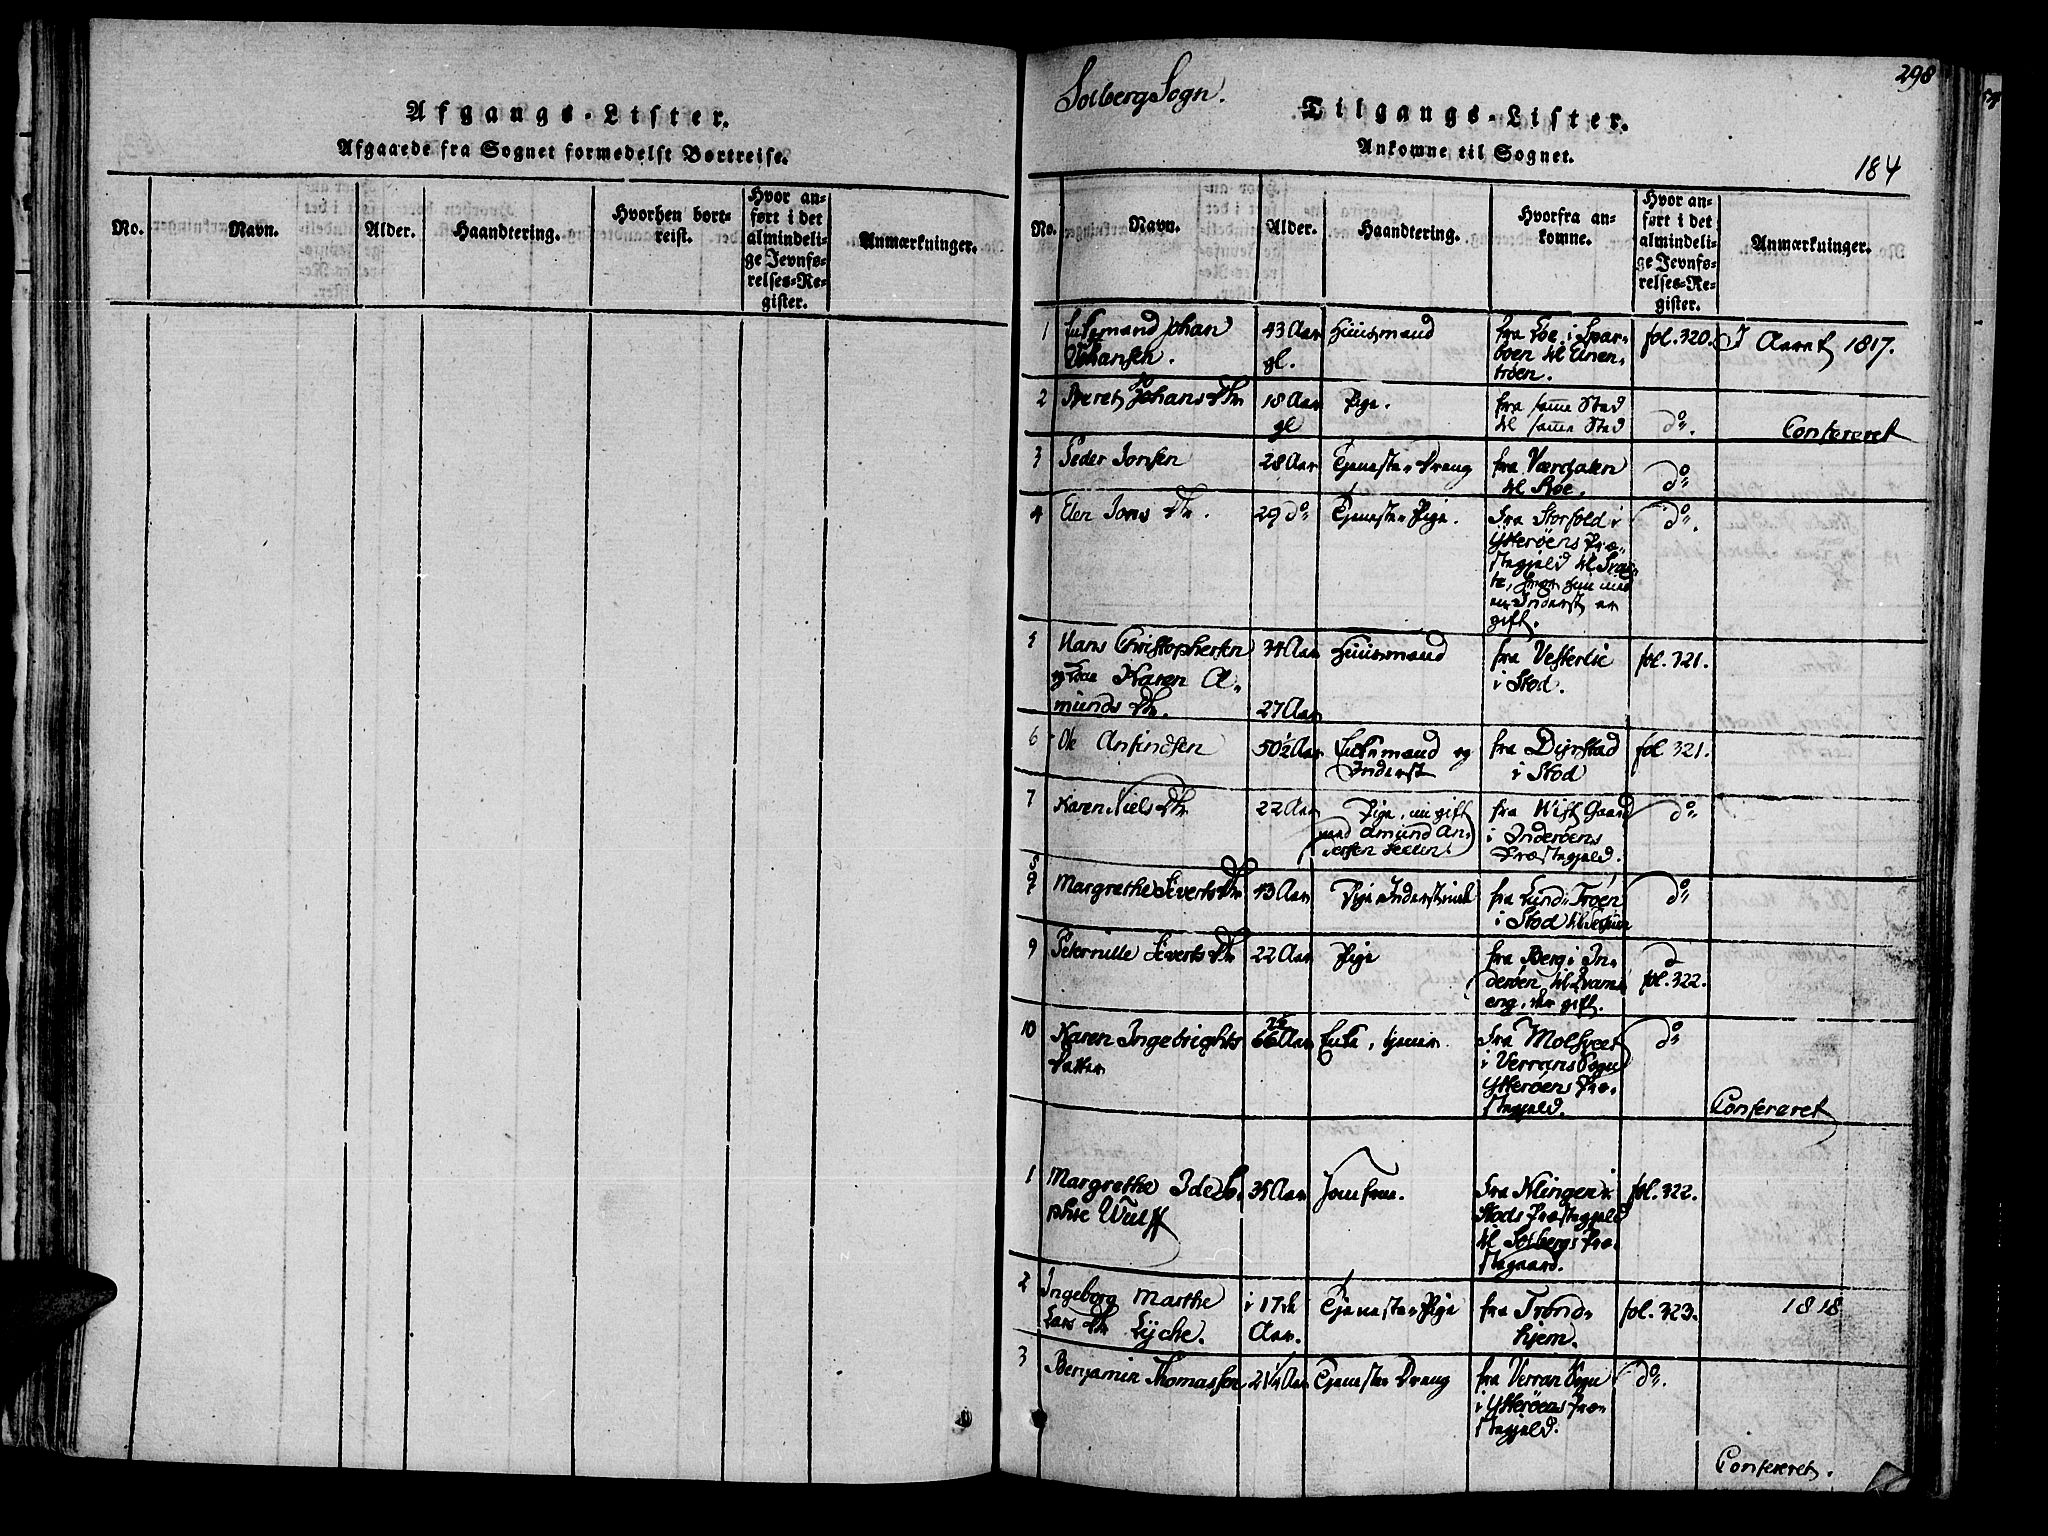 Afgangs-Lister.
Afgaaede fra Sognet formedelst Bortreise.
No.
Navn.
Alder.
Haandtering.
Hvorhen bort-
reist.
Hvor an-
ført i det
almindeli-
ge Jevnfø-
relses-Re-
gister.
Anmærkninger.
298
Solberg Sogn.
Tilgangs-Lister.
Ankomne til Sognet.
184
No.
Navn.
Alder.
Haandtering.
Hvorfra an-
komne.
Hvor an-
ført i det
almindeli-
ge Jevnfø-
relses-Re-
gister.
Anmærkninger.
1 Enkemand Johan
Johansen.
43 Aar
gl.
Huusmand
fra Søe i Spar-
boen til Enen-
trøen.
fol. 320.
I Aaret 1817.
2 Beret Johans Dtr
18 Aar
gl
Pige.
fra same Stad
til same Stad
do.
Confereret
3 Peder Jonsen
28 Aar
Tjeneste Dreng
fra Værdalen
til Røe.
do
4 Elen Jons Dtr.
29 do
Tjeneste Pige.
fra Storfold i
Ytterøens Præ-
stegjeld til
hun med
en Inderst er
gift.
do.
5 Hans Christophersen
og Kone Karen A-
munds Dtr.
34 Aar
27 Aar
Huusmand
fra Vesterlie
i Stod.
fol. 321.
6 Ole Anfindsen
50½ Aar
Enkemand og
Inderst
fra Dyrstad
i Stod
fol 321.
7 Karen Niels Dtr
22 Aar
Pige, nu gift
med Amund An-
dersen
fra Wist Gaard
i Inderøens
Præstegjeld.
do
8 Margrethe Siverts Dtr
43 Aar
Pige Inderst
fra Lunds Trøen
i Stod til
do
9 Peternille Siverts Dtr
22 Aar
Pige
fra Berg i In-
derøen til Qvam
eng, der gift.
do
fol. 322.
10 Karen Ingebrights
Datter
66 Aar
Enke, tjener
fra Molsvect
i Verrans Sogn
Ytterøens Præ-
stegjeld.
do
Confereret
1 Margrethe Ide So-
phie Wulff
35 Aar
Jomfrue.
fra Klingen i
Stods Præstegjeld
til Solbergs Præ-
stegaard.
fol. 322.
2 Ingeborg Marthe
Lars Dtr Lyche.
i 17de
Aar.
Tjeneste Pige
fra Trond-
hjem.
fol. 323.
1818
3 Benjamin Thomassen
21½ Aar
Tjeneste Dreng
fra Verran Sogn
i Ytterøens Præ-
stegjeld.
do.
Confereret.